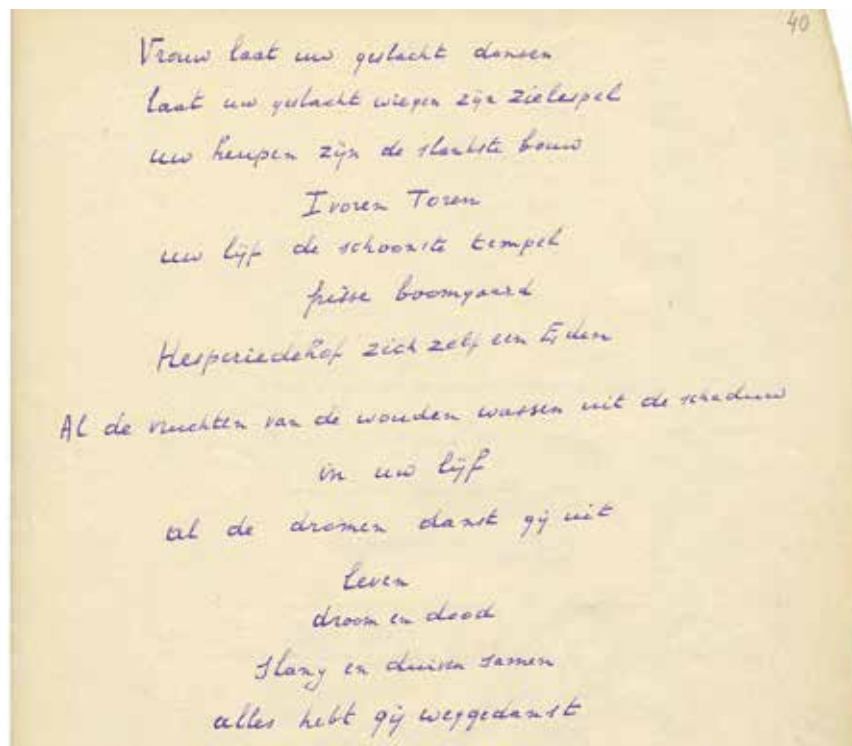 40
Vrouw laat uw geslacht dansen
laat uw geslacht wiegen zijn zielespel
uw heupen zijn de slankste bouw
Ivoren Toren
uw lijf de schoonste tempel
frisse boomgaard
Hesperiedehof zich zelf een Eden
Al de vruchten van de wouden wassen uit de schaduw
in uw lijf
al de dromen danst gij uit
leven
droom en dood
slang en duiven samen
alles hebt gij weggedanst